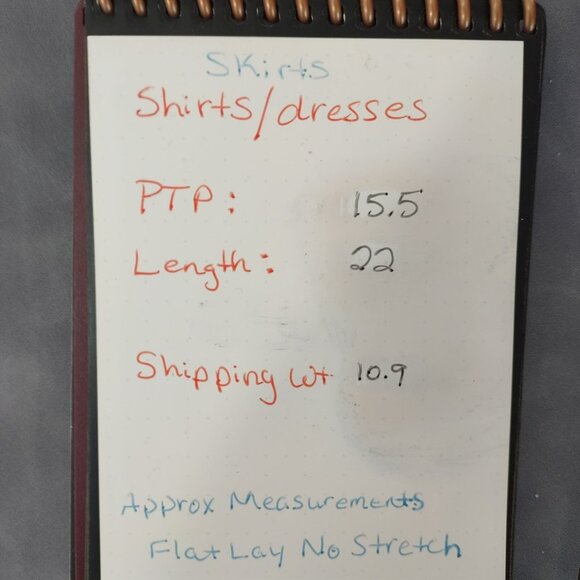 Skirts
Shirts/dresses
PTP: 15.5
Length: 22
Shipping Wt 10.9
Approx Measurements
Flat Lay No Stretch